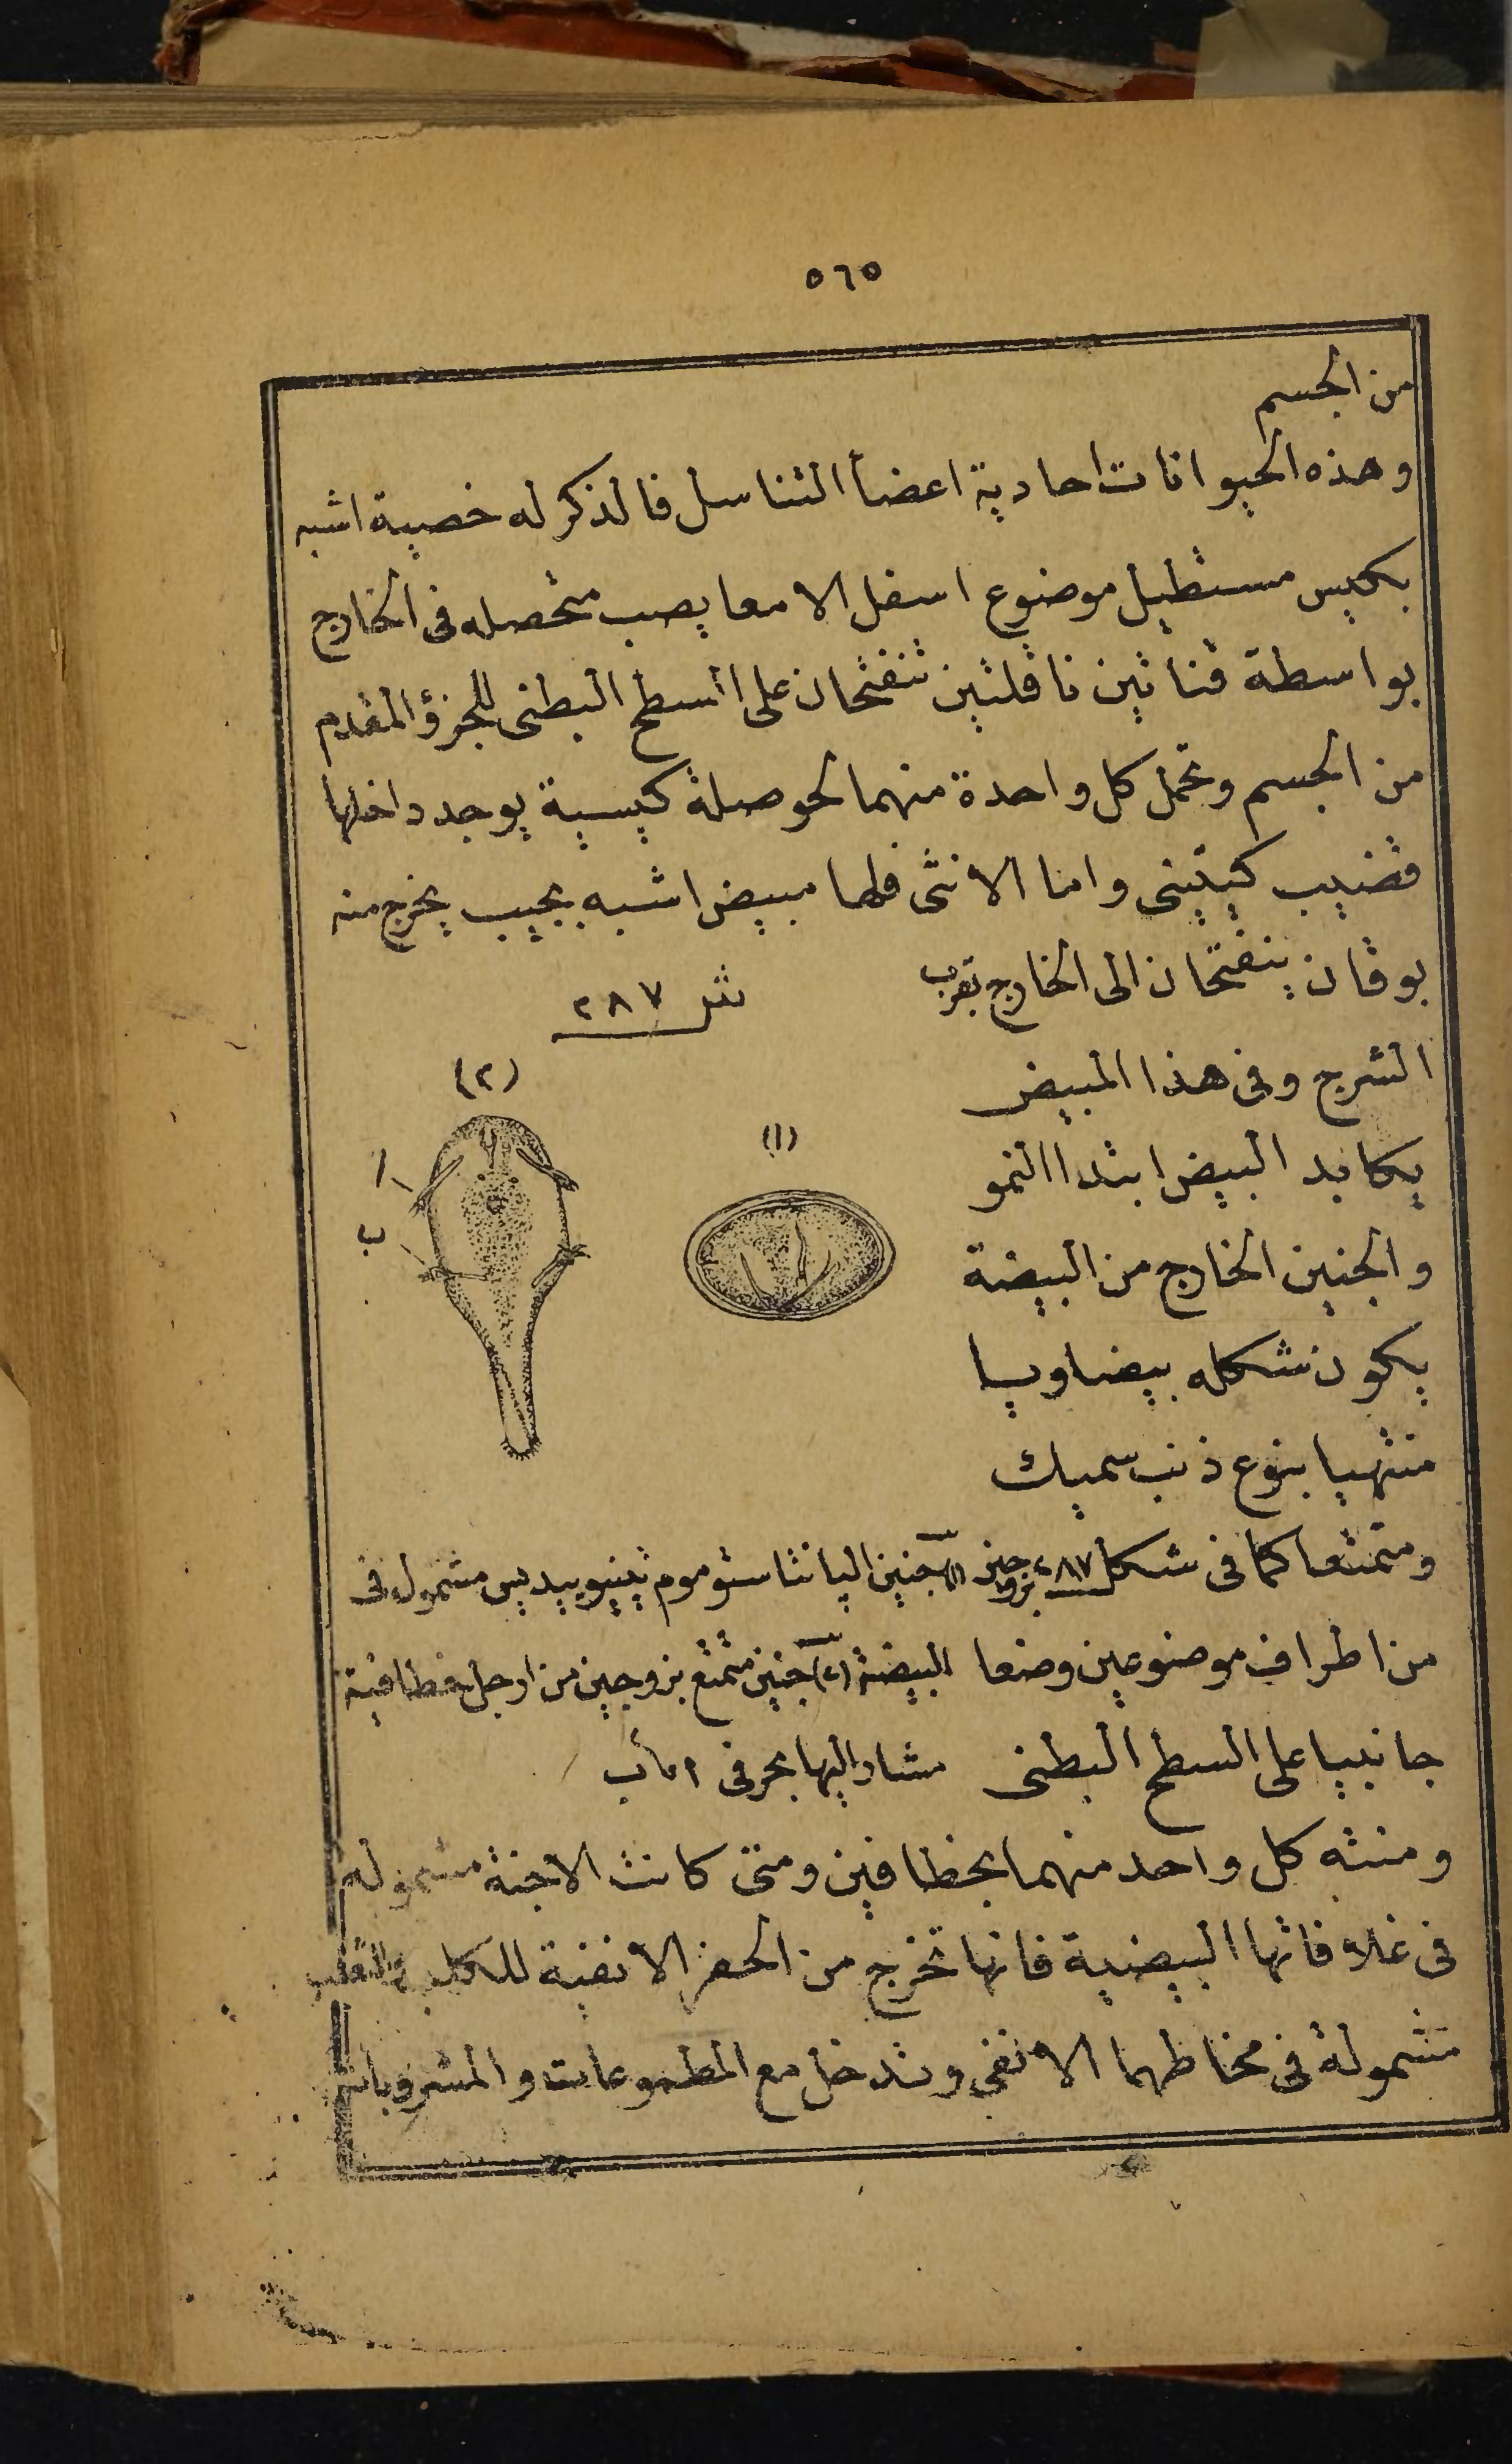 ٥٦٥
من الجسم
وهذه الحيوانات احادية اعضأ التناسل فالذكر له خصية اشبه
بكيس مستطيل موضوع اسفل الامعا يصب متحصله فى الخارج
بواسطة قناتين ناقلتين تنفتحان على السطح البطنى للجزؤ المقدم
من الجسم وتحمل كل واحدة منهما لحوصلة كيسية يوجد داخلها
قضيب كيتينى واما الانثى فلها مبيض اشبه بجيب يخرج منه
بوقان ينفتحان الى الخارج بقرب
الشرج وفى هذا المبيض
يكابد البيض ابتدا النمو
والجنين الخارج من البيضة
يكون شكله بيضاويا
منتهيا بنوع ذنب سميك
شر ٢٨٧
(٢)
(١)
ا
ب
ومتمتعا كما فى شكل ٢٨٧ بزوجين
من اطراف موضوعين وضعا
جانبيا على السطح البطنى
(١) جنين الپانتاستوموم تينيوييديس مشمول فى
البيضة (٢) جنين متمتع بزوجين من ارجل خطافية
مشار اليها بحرفى ا ب
ومنته كل واحد منهما بخطافين ومتى كانت الاجنة مشمولة
فى غلافاتها البيضية فانها تخرج من الحفر الانفية للكلب
مشمولة فى مخاطهما الانفى وتدخل مع المطعومات والمشروبات